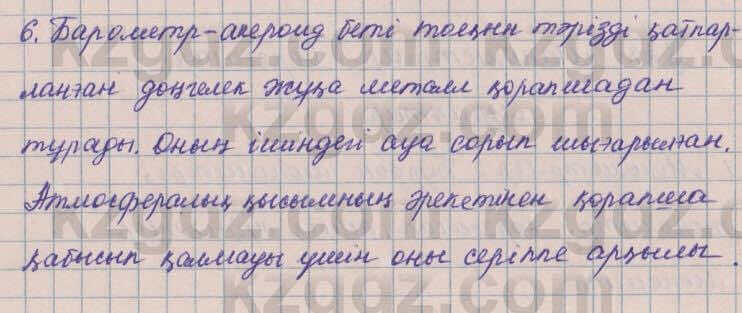 6. Барометр-анероид беті толқын тәрізді қатпар-
ланған дөңгелек жұқа металл қорапшадан
тұрады. Оның ішіндегі ауа сорып шығарылған.
Атмосфералық қысымның әрекетінен қорапша
қабысып қалмауы үшін оны серіппе арқылы.